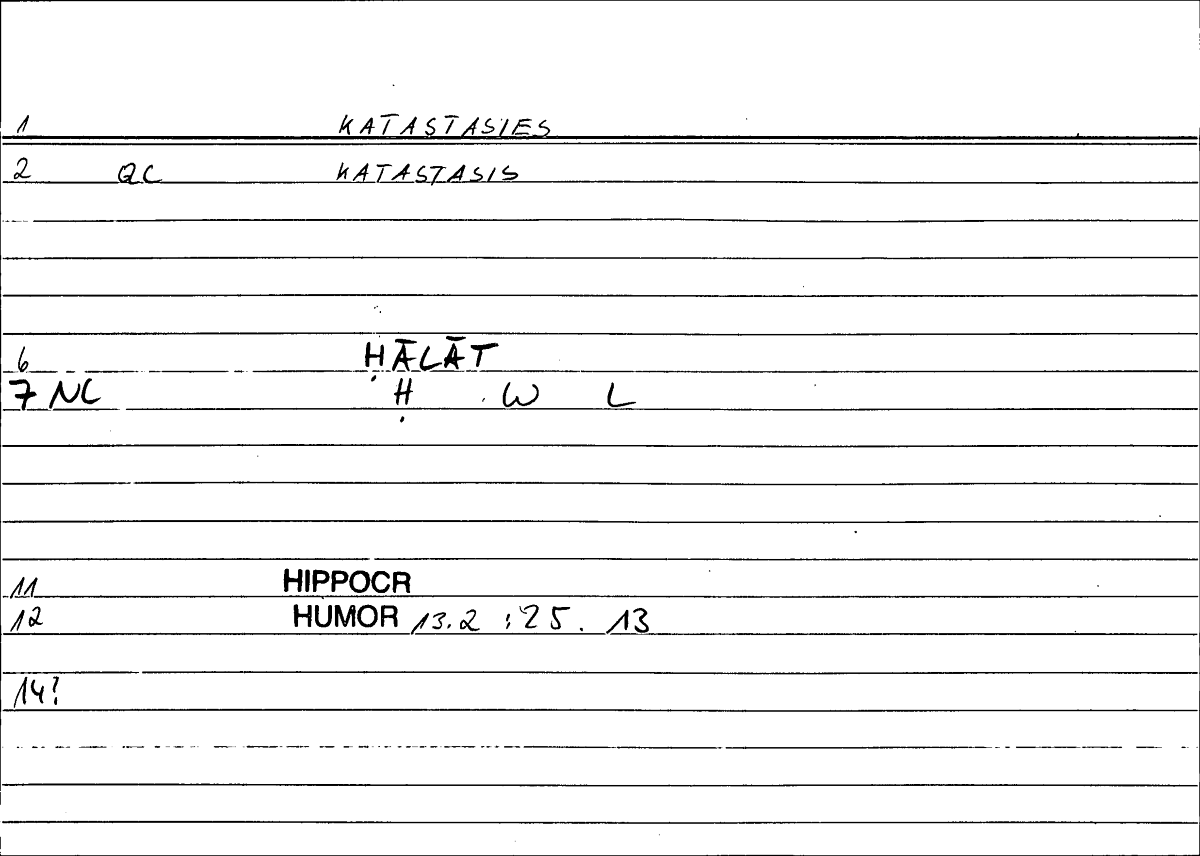 1 KATASTASIES
2 QC KATASTASIS
6 ḤĀLĀT
7 NC Ḥ W L
11 HIPPOCR
12 HUMOR 13.2 : 25. 13
14?